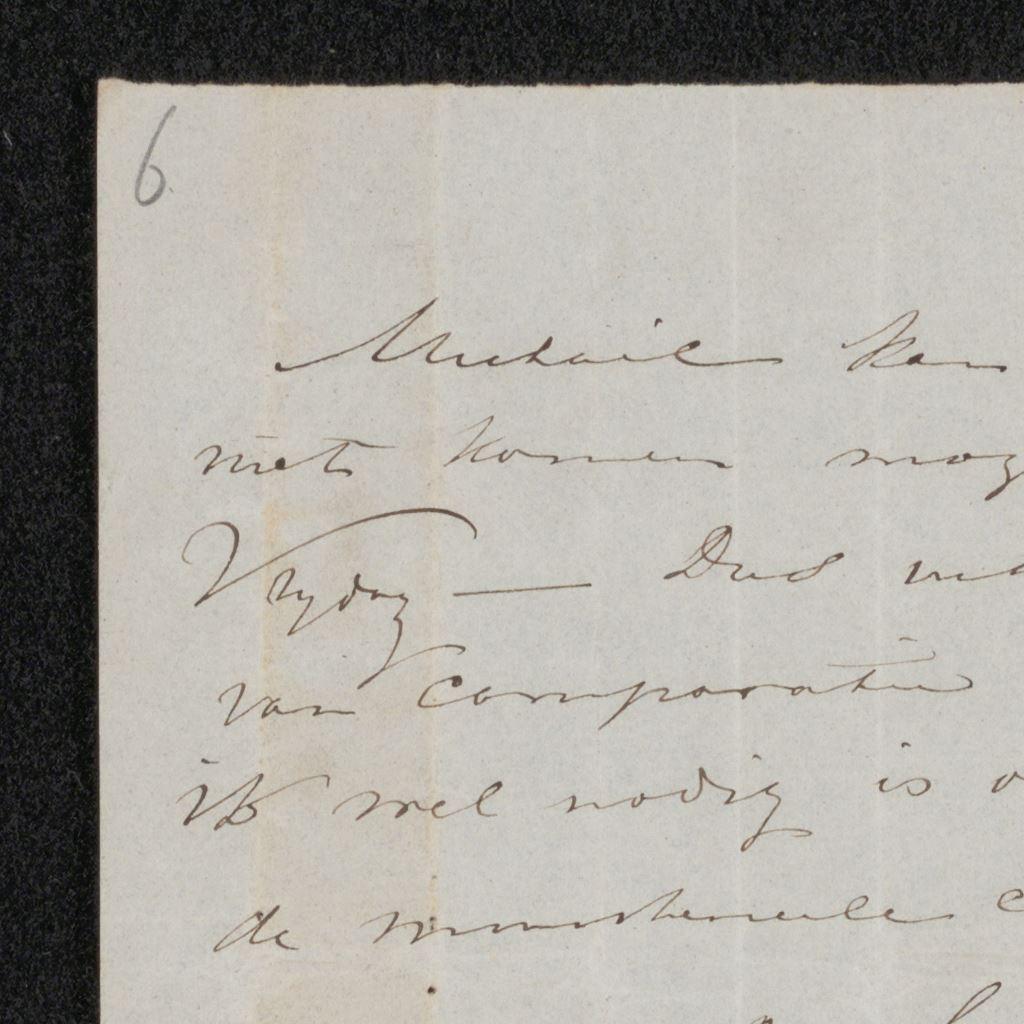 6
Michaël kan
niet komen
Vrydag — Dus
van Comparatie
ik wel nodig is
de ministerieele